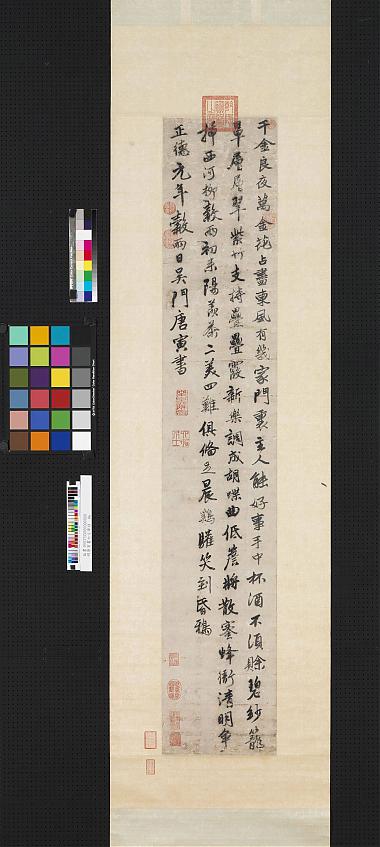 千金良夜萬金花占盡東風有幾家門裏主人能好事手中杯酒不須賒碧紗籠
罩層層翠紫竹支持疊疊霞新樂調成胡蝶曲低簷將散蜜蜂衙清明爭
插西河柳穀雨初來陽羨茶二美四難俱備足晨鷄矐笑到昏鴉
正德元年穀雨日吳門唐寅書